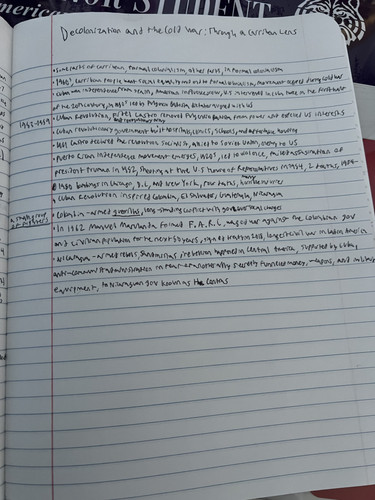 merican
STUDENT
Decolonization and the Cold War: Through a Carribean Lens
• Some parts of carribean, formal colonialism, others post, in formal colonialism
• 1960s, carribean people want social equality and end to formal colonialism, movement during cold war
• Cuba won independence from Spain, American influence, U.S. intervened in Cuba twice in the first half
of the 20th century, in 1952 led to Fulgencio Batista, dictator aligned with US
1953-1959 • Cuban Revolution, Fidel Castro removed Fulgencio Batista from power and US interests
• Cuban revolutionary government built schools, clinics, and housing
• 1961 Castro declared the revolution socialist, allied to Soviet Union, enemy to US
• Puerto Rican independence movement emerges, 1950s, led to violence, assassination of
president truman in 1952, shooting at the U.S. House of Representatives in 1954,
bombings in Chicago, D.C, and New York,
• Cuban Revolution inspired Colombia, El Salvador, Guatemala, Nicaragua
• Colombia - armed guerillas, long-standing conflict with gov
• In 1962 Manuel Marulanda formed F.A.R.C, waged war against the Colombian gov
and civilian population for the next 50 years, signed treaty in 2016, longest civil war in Latin America
• Nicaragua - armed rebels, Sandinistas, rebellion happened in central America, supported by Cuba,
anti-communist administration in secretly funneled money, weapons, and military
equipment, to Nicaraguan gov known as the contras